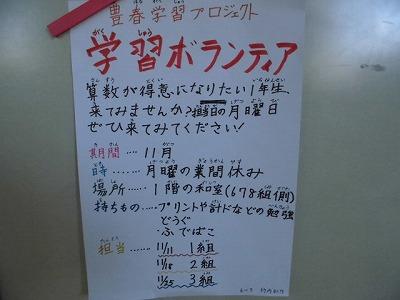 豊春学習プロジェクト
学習ボランティア
算数が得意になりたい1年生、
来てみませんか?担当の月曜日
ぜひ来てみてください!
期間‥‥11月
時‥‥‥‥月曜の業間休み
場所‥‥‥1階の和室(678組側)
持ちもの‥‥プリントや計ドなどの勉強
どうぐ
・ふでばこ
担当‥‥11/11 1組
11/18 2組
11/25 3組